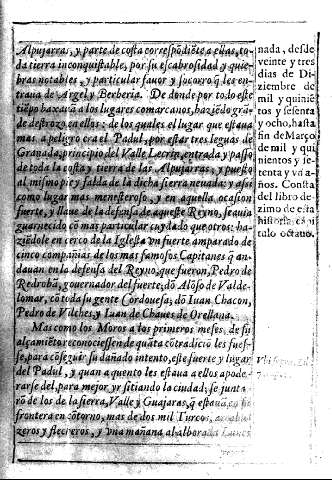 Alpujarras, y parte de costa correspõdiẽte a ellas, to-
da tierra inconquistable, por su escabrosidad y quie-
bras notables, y particular fauor y socorro q̃ les en-
traua de Argel y Berberia. De donde por todo este
tiẽpo baxauã a los lugares comarcanos, haziẽdo grã-
de destrozo en ellos: de los quales el lugar que estaua
mas a peligro era el Padul, por estar tres leguas de
Granada, principio del Valle Lecrin, entrada y passo
de toda la costa y tierra de las Alpujarras, y puesto
al mismo pie y falda de la dicha sierra neuada: y assi
como lugar mas menesteroso, y en aquella ocasion
fuerte, y llaue de la defensa de aqueste Reyno, se auia
guarnecido cõ mas particular cuydado que otros: ha-
ziẽdole en cerco de la Iglesia vn fuerte amparado de
cinco compañias de los mas famosos Capitanes q̃ an-
dauan en la defensa del Reyno, que fueron, Pedro de
Redroba, gouernador del fuerte; dõ Alõso de Valde-
lomar, cõ toda su gente Cordouesa; dõ Iuan Chacon,
Pedro de Vilches, y Iuan de Chaues de Orellana.
Mas como los Moros a los primeros meses, de su
alçamiẽto reconociessen de quãta cõtradiciõ les fues-
se, para cõseguir su dañado intento, este fuerte y lugar
del Padul, y quan a quento les estaua a ellos apode-
rarse del, para mejor yr sitiando la ciudad; se junta
rõ de los de la sierra, Valle y Guajaras, q̃ estauã, en su
frontera en cõtorno, mas de dos mil Turcos,
zeros y flecheros, y vna mañana al alborada Lunes
nada, desde
veinte y tres
dias de Di-
ziembre de
mil y quiniẽ
tos y sesenta
y ocho, hasta
fin de Março
de mil y qui
nientos y se-
senta y vn a-
ños. Consta
del libro de-
zimo de esta
historia, capi
tulo octauo.